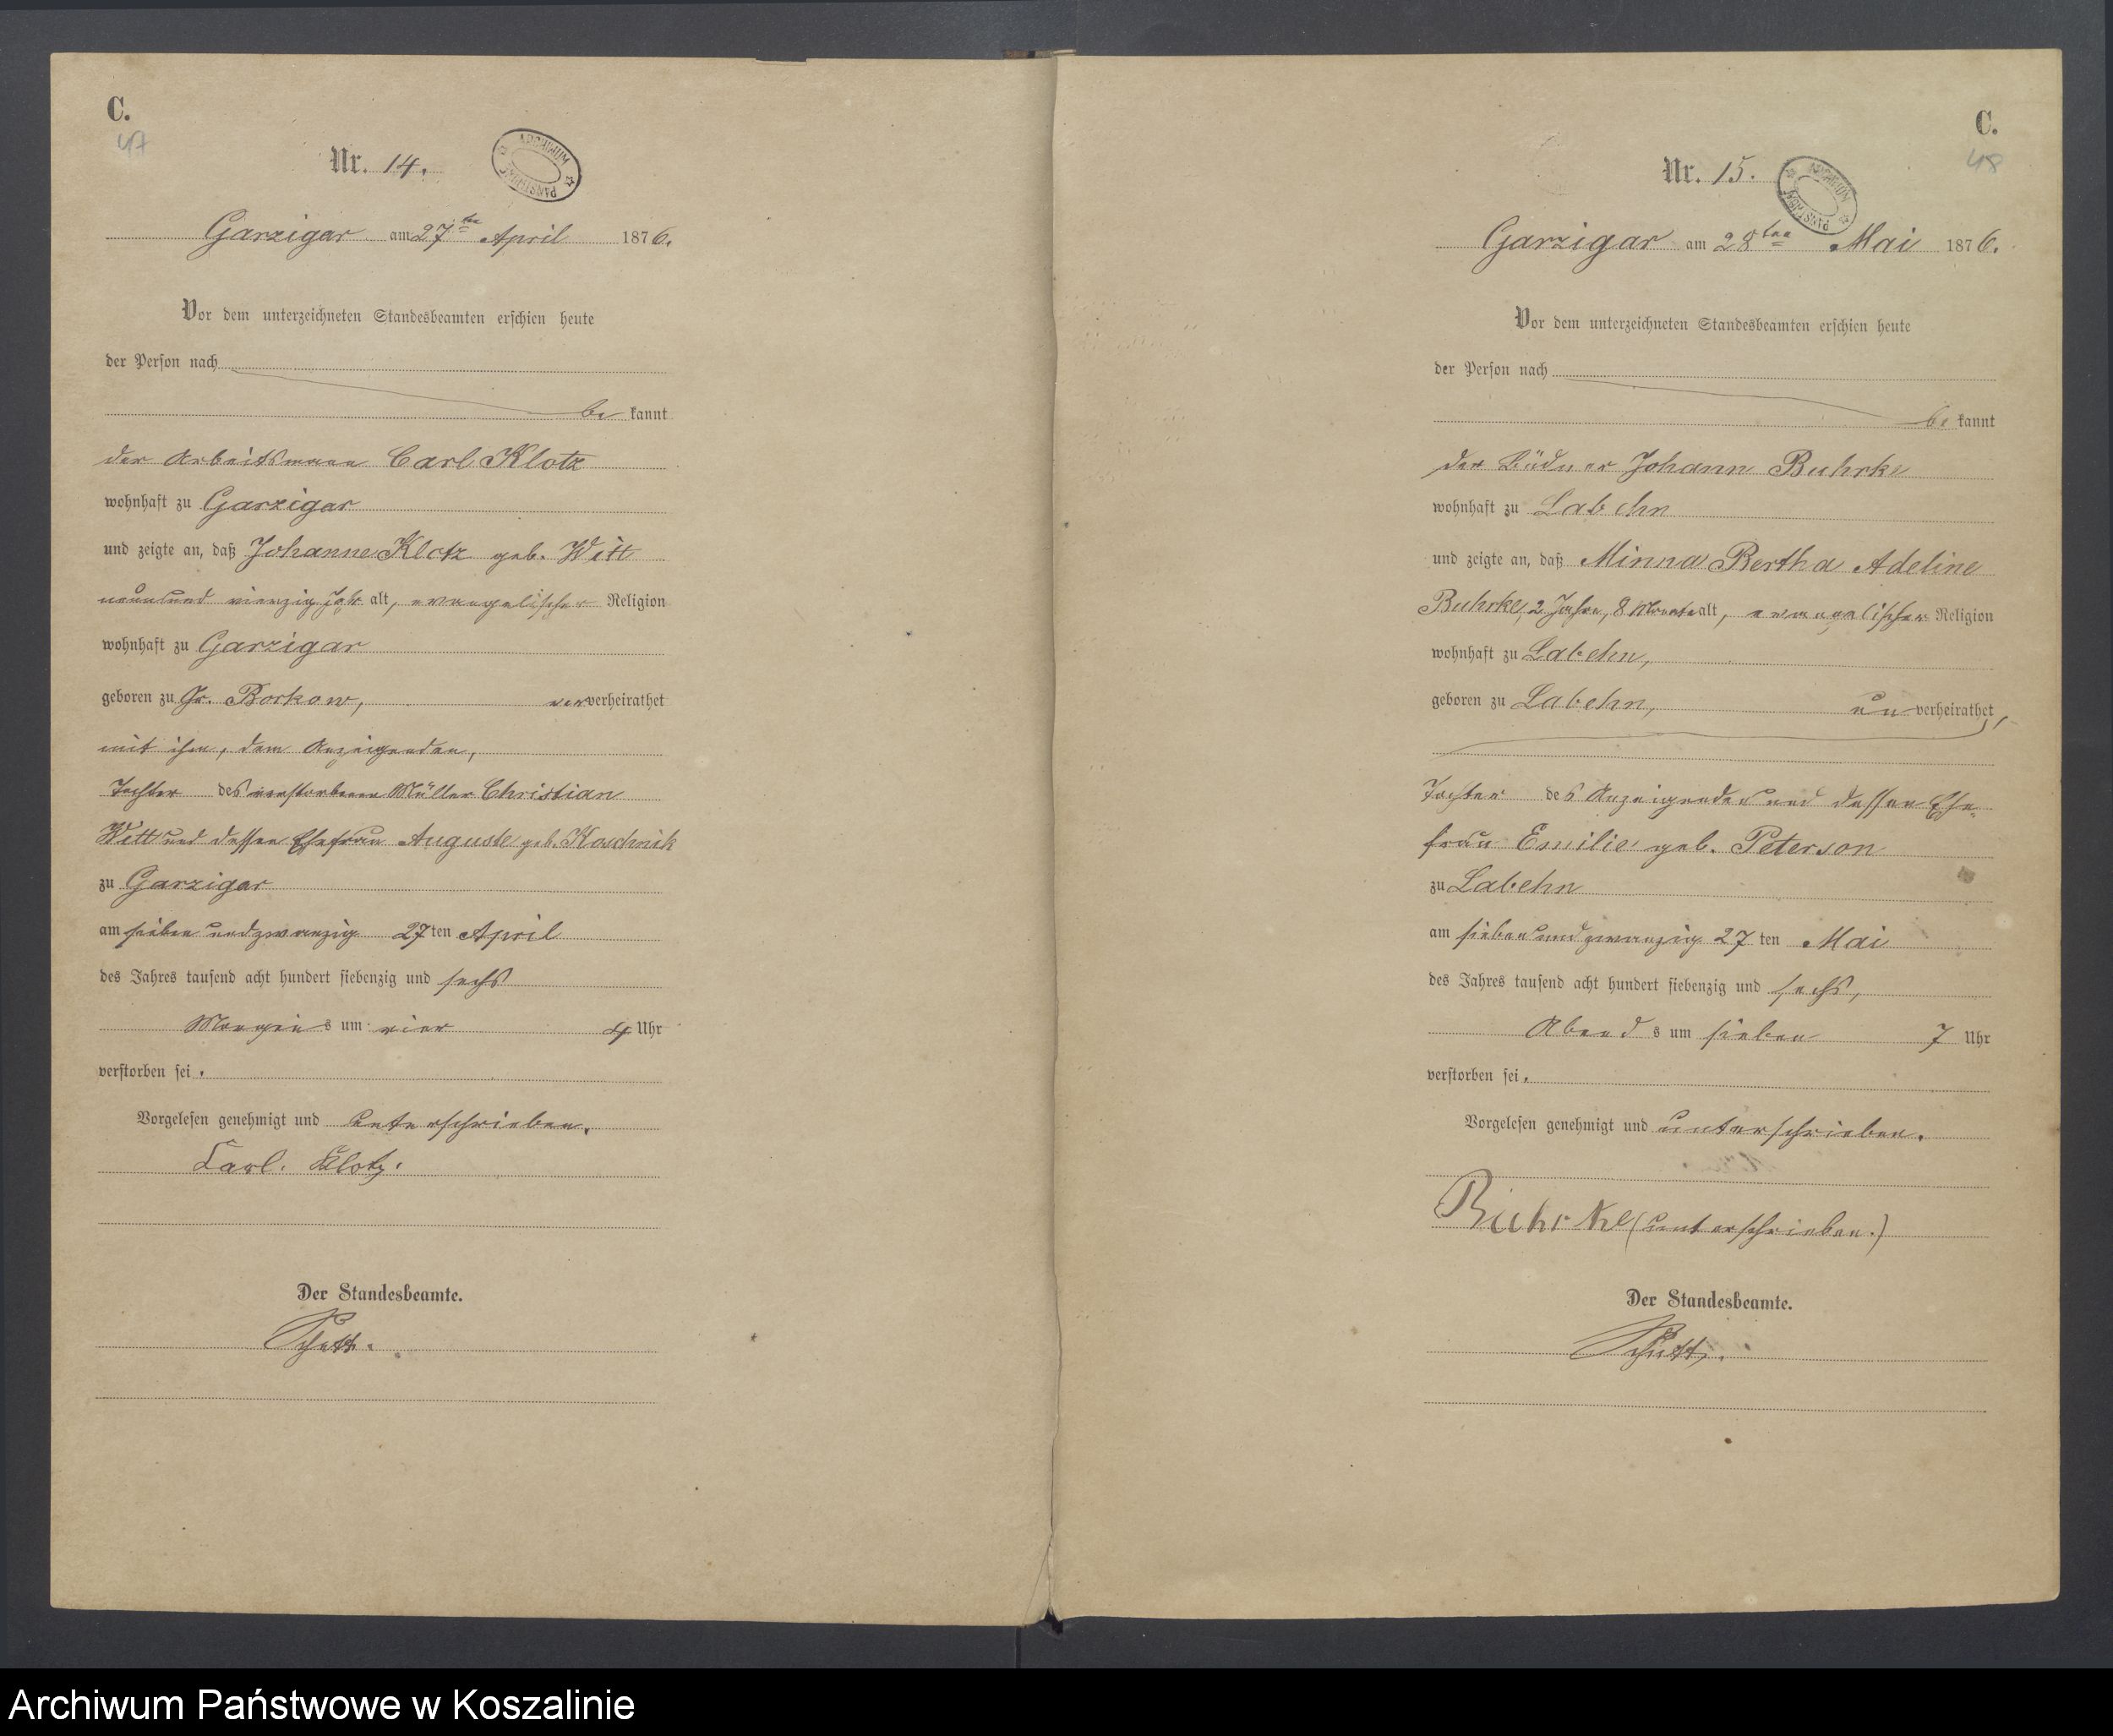 C.
47
Nr. 14.
ARCHIWUM PAŃSTWOWE
Garzigar am 27ten April 1876.
Vor dem unterzeichneten Standesbeamten erschien heute
der Person nach
be kannt
der Arbeitsmann Carl Klotz
wohnhaft zu Garzigar
und zeigte an, daß Johanne Klotz geb. Witt
neun und vierzig Jahr alt, evangelischer Religion
wohnhaft zu Garzigar
geboren zu Gr. Borkow, ver verheirathet
mit ihm, dem Anzeigenden,
Tochter des verstorbenen Müller Christian
Witt und dessen Ehefrau Auguste geb. Koschnik
zu Garzigar
am sieben und zwanzig 27 ten April
des Jahres tausend acht hundert siebenzig und sechs
Morgen s um vier 4 Uhr
verstorben sei.
Vorgelesen genehmigt und unterschrieben.
Carl. Klotz.
Der Standesbeamte.
Schütt.
C.
48
Nr. 15.
ARCHIWUM PAŃSTWOWE
Garzigar am 28ten Mai 1876.
Vor dem unterzeichneten Standesbeamten erschien heute
der Person nach
be kannt
der Büdner Johann Buhrke
wohnhaft zu Labehn
und zeigte an, daß Minna Bertha Adeline
Buhrke, 2 Jahre, 8 Monate alt, evangelischer Religion
wohnhaft zu Labehn,
geboren zu Labehn, un verheirathet,
Tochter des Anzeigenden und dessen Ehe-
frau Emilie geb. Peterson
zu Labehn
am sieben und zwanzig 27 ten Mai
des Jahres tausend acht hundert siebenzig und sechs,
Abend s um sieben 7 Uhr
verstorben sei.
Vorgelesen genehmigt und unterschrieben.
Buhrke (unterschrieben.)
Der Standesbeamte.
Schütt.
Archiwum Państwowe w Koszalinie